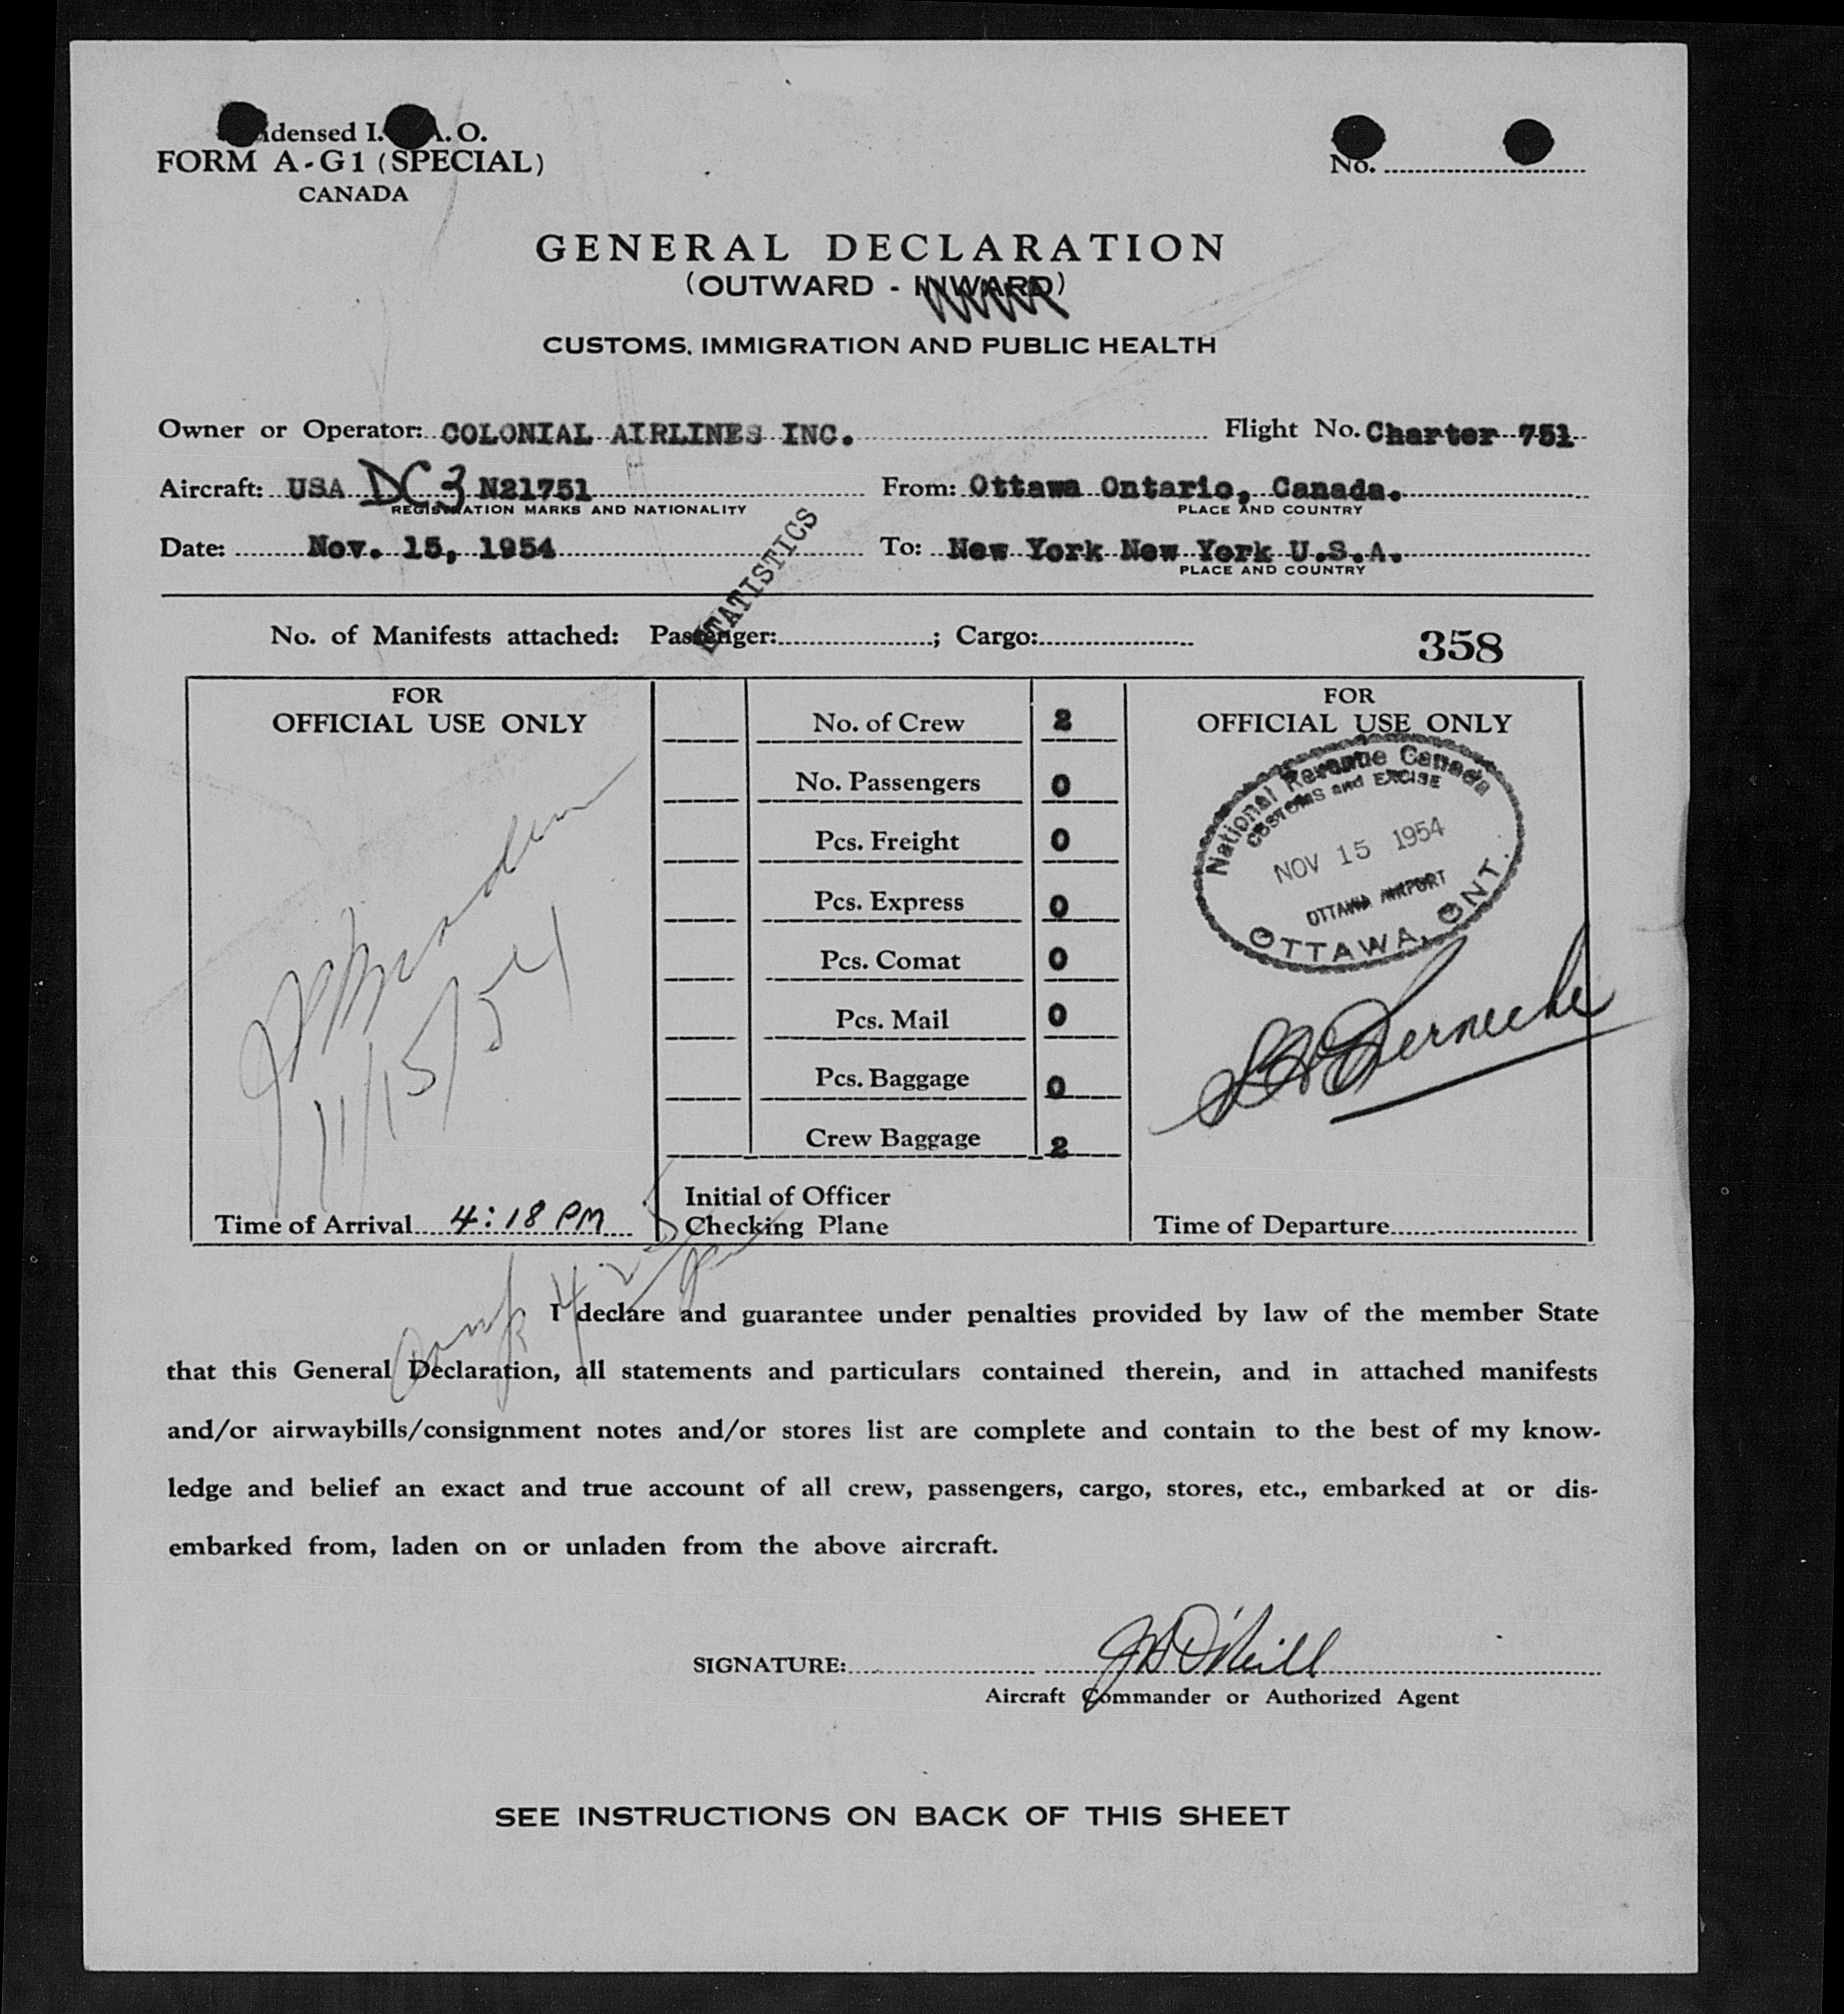 densed I. A. O.
FORM A-G1 (SPECIAL)
CANADA
No.
GENERAL DECLARATION
(OUTWARD - INWARD)
CUSTOMS, IMMIGRATION AND PUBLIC HEALTH
Owner or Operator: COLONIAL AIRLINES INC. Flight No. Charter 751
Aircraft: USA DC 3 N21751 From: Ottawa Ontario, Canada.
REGISTRATION MARKS AND NATIONALITY PLACE AND COUNTRY
Date: Nov. 15, 1954 To: New York New York U.S.A.
PLACE AND COUNTRY
STATISTICS
No. of Manifests attached: Passenger: ; Cargo: 358
FOR
OFFICIAL USE ONLY
11/15/54
Time of Arrival 4:18 PM
No. of Crew 2
No. Passengers 0
Pcs. Freight 0
Pcs. Express 0
Pcs. Comat 0
Pcs. Mail 0
Pcs. Baggage 0
Crew Baggage 2
Initial of Officer
Checking Plane
FOR
OFFICIAL USE ONLY
National Revenue Canada
CUSTOMS and EXCISE
NOV 15 1954
OTTAWA AIRPORT
OTTAWA, ONT.
Time of Departure
4:25
I declare and guarantee under penalties provided by law of the member State
that this General Declaration, all statements and particulars contained therein, and in attached manifests
and/or airwaybills/consignment notes and/or stores list are complete and contain to the best of my know-
ledge and belief an exact and true account of all crew, passengers, cargo, stores, etc., embarked at or dis-
embarked from, laden on or unladen from the above aircraft.
SIGNATURE: J H O'Neill
Aircraft Commander or Authorized Agent
SEE INSTRUCTIONS ON BACK OF THIS SHEET